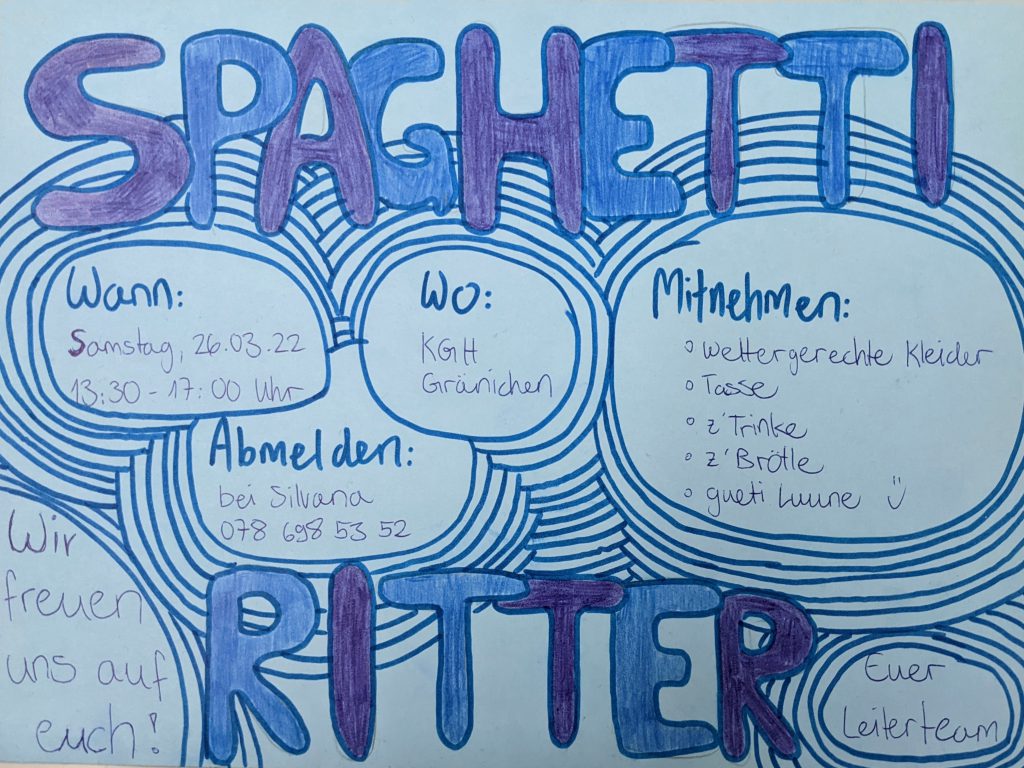 SPAGHETTI
Wann:
Samstag, 26.03.22
13:30 - 17:00 Uhr
Wo:
KGH
Gränichen
Mitnehmen:
o wettergerechte Kleider
o Tasse
o z'Trinke
o z'Brötle
o gueti Luune ü
Abmelden:
bei Silvana
078 698 53 52
Wir
freuen
uns auf
euch!
RITTER
Euer
Leiterteam